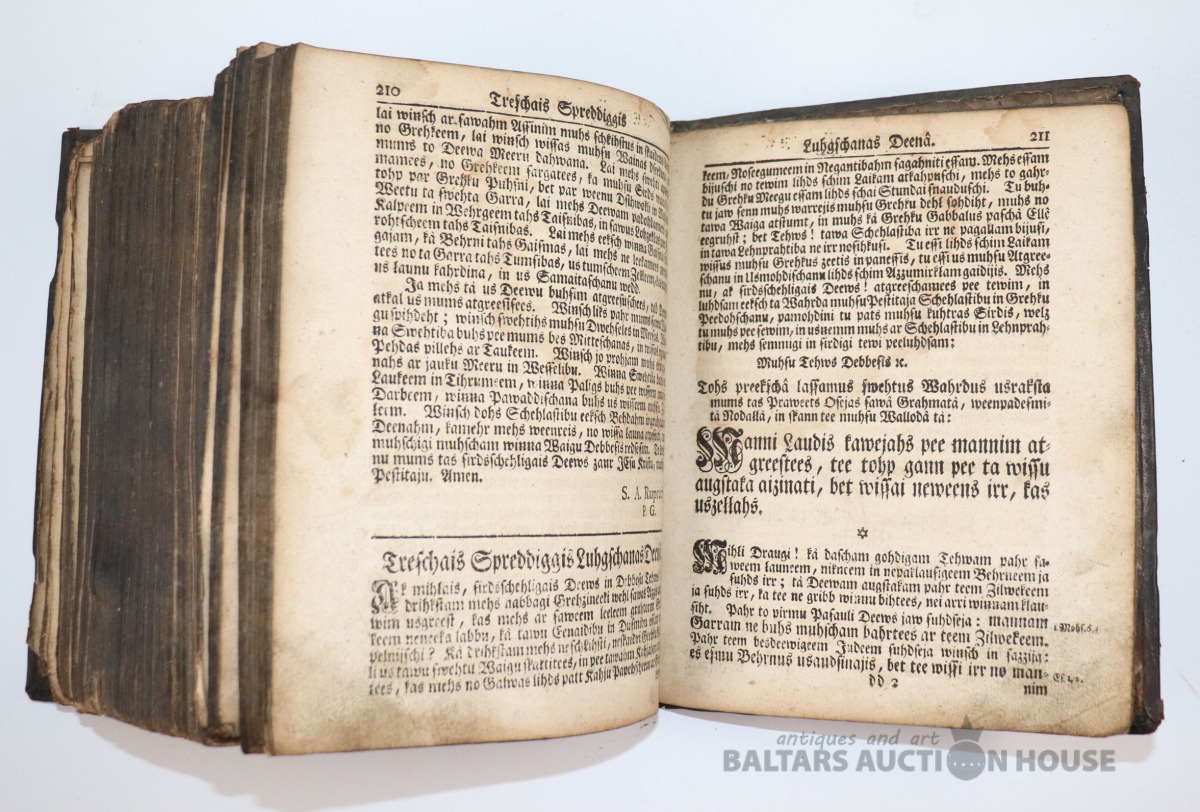 210
Treschais Spreddiggis
lai winsch ar sawahm Assinim muhs schkihstus in
no Grehkeem, lai winsch wissas muhsu Wainas
mums to Deewa Meeru dahwana. Lai mehs
mamees, no Grehkeem sargatees, ka muhsu Sirds
tohp par Grehku Puhsni, bet par weenu
Weetu ta swehta Garra, lai mehs Deewam
Kalpeem in Wehrgeem tahs Taisnibas, in sawus
rohtscheem tahs Taisnibas. Lai mehs eeksch winna
gajam, kâ Behrni tahs Gaismas, lai mehs ne
tees no ta Garra tahs Tumsibas, us tumscheem
us launu kahrdina, in us Samaitaschanu wedd.
Ja mehs tâ us Deewu buhsim atgreesuschees,
atkal us mums atgreesisees. Winsch liks pahr mums
gu spihdeht; winsch swehtihs muhsu Dwehseles in
na Swehtiba buhs pee mums bes Mitteschanas, in
Pehdas pillehs ar Taukeem. Winsch jo prohjam
nahs ar jauku Meeru in Wesselibu. Winna
Laukeem in Tihrumeem, winna Paligs buhs pee
Darbeem, winna Pawaddischana buhs us wisseem
leem. Winsch dohs Schehlastibu eeksch
Deenahm, kamehr mehs weenreis, no wissa launa
muhschigi muhscham winna Waigu Debbesis redsesim.
nu mums tas sirdsschehligais Deews zaur JEsu
Pestitaju. Amen.
S. A.
P. G.
Treschais Spreddiggis Luhgschanas
Ak mihlais, sirdsschehligais Deews in Debbesu
drihkstam mehs nabbagi Grehzineeki wehl
wim usgreest, kas mehs ar saweem leeleem
leem neneeka labbu, kâ tawu Eenaidibu in Dusmibu
pelnijschi? Kâ drihkstam mehs
li us tawu swehtu Waigu skattitees, in pee tawahm
tees, kas mehs no Galwas lihds patt Kahju
Luhgschanas Deenâ.
211
keem, Noseegumeem in Negantibahm sagahniti essam. Mehs essam
bijuschi no tewim lihds schim Laikam atkahpuschi, mehs to gahr-
du Grehku Meegu essam lihds schai Stundai snauduschi. Tu buh-
tu jaw senn muhs warrejis muhsu Grehku dehl sohdiht, muhs no
tawa Waiga atstumt, in muhs kâ Grehku Gabbalus paschâ Ellê
eegruhst; bet Tehws! tawa Schehlastiba irr ne pagallam bijusi,
in tawa Lehnprahtiba ne irr nosihkusi. Tu essi lihds schim Laikam
wissus muhsu Grehkus zeetis in panessis, tu essi us muhsu Atgree-
schanu in Usmohdischanu lihds schim Azzumirklam gaidijis. Mehs
nu, ak sirdsschehligais Deews! atgreeschamees pee tewim, in
luhdsam eeksch ta Wahrda muhsu Pestitaja Schehlastibu in Grehku
Peedohschanu, pamohdini tu pats muhsu kuhtras Sirdis, welz
tu muhs pee sewim, in usnemm muhs ar Schehlastibu in Lehnprah-
tibu, mehs semmigi in sirdigi tewi peeluhdsam;
Muhsu Tehws Debbesis ꝛc.
Tohs preekschâ lassamus swehtus Wahrdus usraksta
mums tas Praweets Osejas sawâ Grahmatâ, weenpadesmi-
tâ Nodallâ, in skann tee muhsu Wallodâ tâ:
Manni Laudis kawejahs pee mannim at-
greestees, tee tohp gann pee ta wissu
augstaka aizinati, bet wissai neweens irr, kas
uszellahs.
✡
Mihli Draugi! kâ dascham gohdigam Tehwam pahr sa-
weem launeem, nikneem in nepaklausigeem Behrneem ja
suhds irr; tâ Deewam augstakam pahr teem Zilwekeem
ja suhds irr, ka tee ne gribb winnu bihtees, nei arri winnam klau-
siht. Pahr to pirmu Pasauli Deews jaw suhdseja: mannam
Garram ne buhs muhscham bahrtees ar teem Zilwekeem.
1 Mohs. 6. 3.
Pahr teem besdeewigeem Judeem suhdseja winsch in sazzija:
es esmu Behrnus usaudsinajis, bet tee wissi irr no man-
Es. 1, 2.
DD 2
nim
antiques and art
BALTARS AUCTION HOUSE